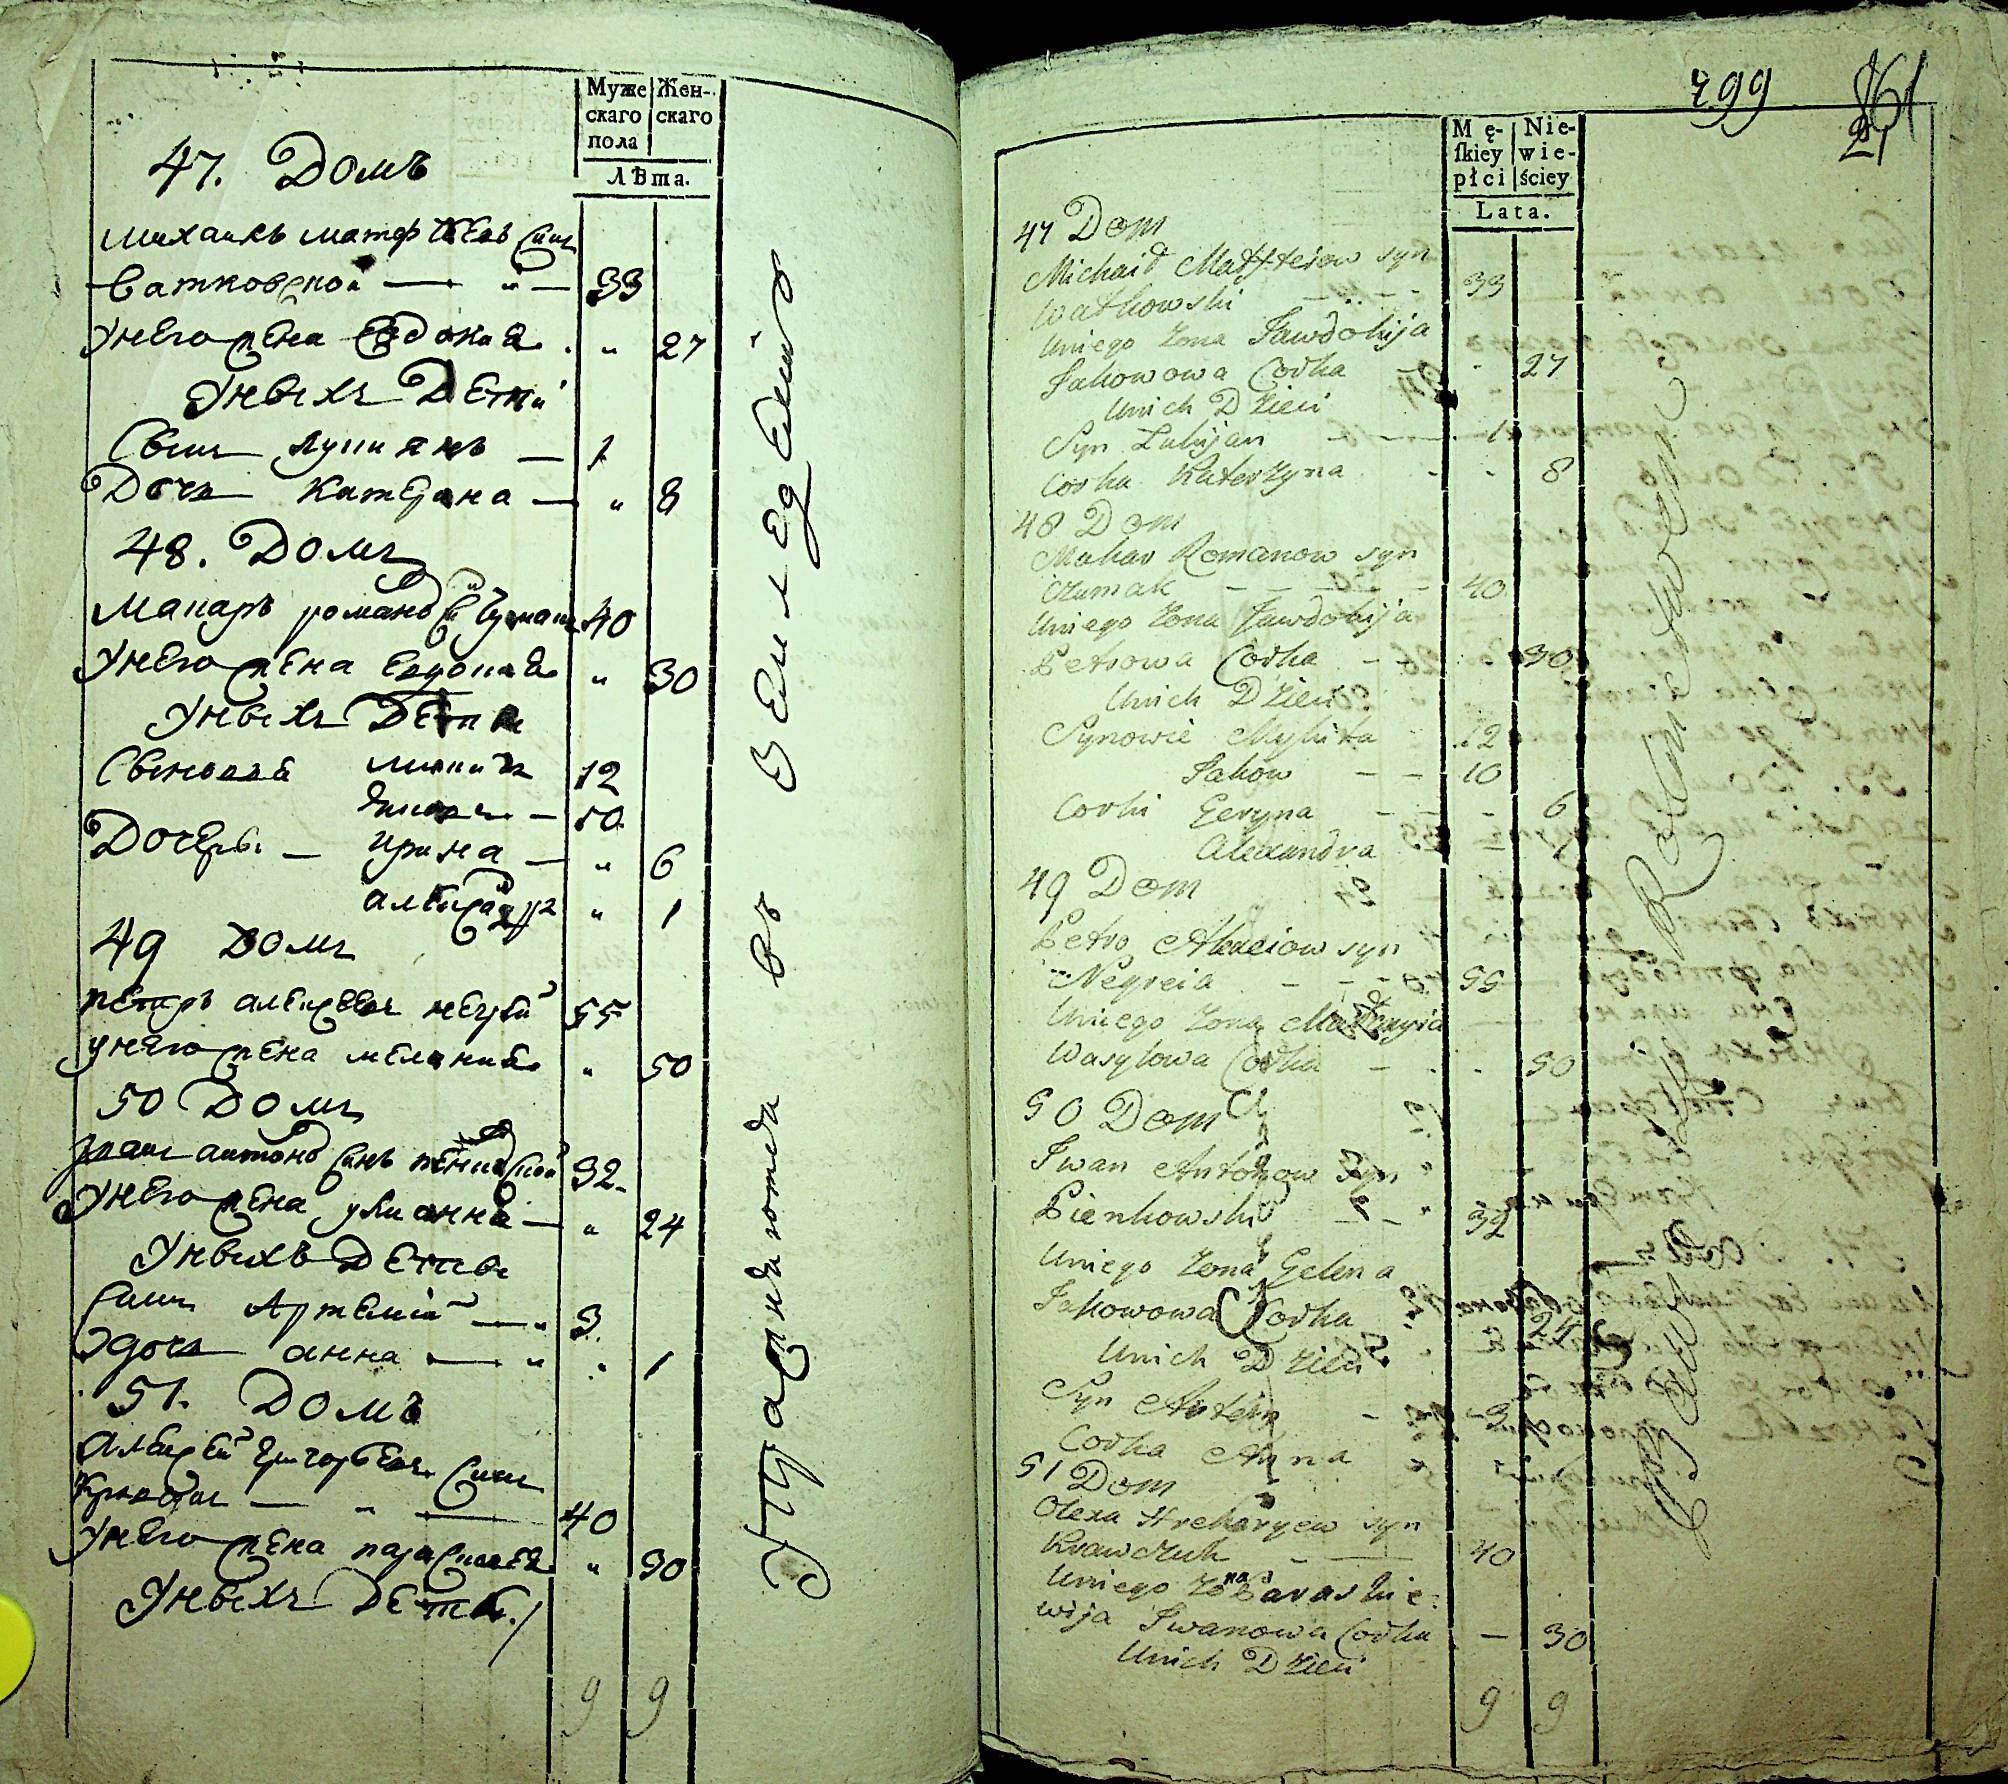 Муже
скаго
пола
Жен-
скаго
Лѣта.
47. Домъ
Михаилъ матфѣевъ сынъ
Ватковской — " — 33
Унего жена Евдокия . " 27
Унихъ Дети
Сынъ лукиянъ — 1
Дочь катерина — " 8
48. Домъ
Макаръ романовъ сынъ Чумакъ 40
Унего жена Евдокия " 30
Унихъ Дети
Сыновья микита 12
Яковъ — 10
Дочери — ирина — " 6
александра " 1
49 Домъ
петръ алексеевъ негрей 55
унего жена мелания " 50
50 Домъ
иванъ антоновъ сынъ пенковской 32
Унего жена улианна — " 24
Унихъ Дети
Сынъ Артемий — " 3
дочь анна — " 1
51. Домъ
алексей григорьевъ сынъ
Кравчукъ — " — 40
Унего жена параскевия " 30
Унихъ Дети
9 9
въ
499
261
21
Mę-
ſkiey
płci
Nie-
wie-
ściey
Lata.
47 Dom
Michaił Matfteiow syn
Watkowski - - - 33
Uniego Zona Jawdokija
Jakowowa Corka - - 27
Unich Dzieci
Syn Lukijan - - 1
Corka Katerzyna - - 8
48 Dom
Makar Romanow syn
Czumak - - - - 40
Uniego Zona Jawdokija
Petrowa Corka - - 30
Unich Dzieci
Synowie Mykita 12
Jakow - - 10
Corki Geryna - - - 6
Alexandra - 1
49 Dom
Petro Alexeiow syn
Negreia - - - 55
Uniego Zona
Wasylowa Corka - - - 50
50 Dom
Iwan Antonow Syn
Pienkowski - - 32
Uniego Zona Gelena
Jakowowa Corka 24
Unich Dzieci
Syn - 3
Corka Anna
51 Dom
Olexa Hrehoryew syn
Krawczuk - — 40
Uniego Zona Paraskie-
wija Iwanowa Corka - — 30
Unich Dzieci
9 9